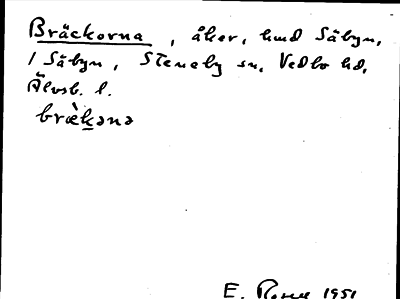 Bräckorna, åker, hmd Säbyn,
1 Säbyn, Steneby sn, Vedbo hd,
Älvsb. l.
bræ̀kənə
E. 1951